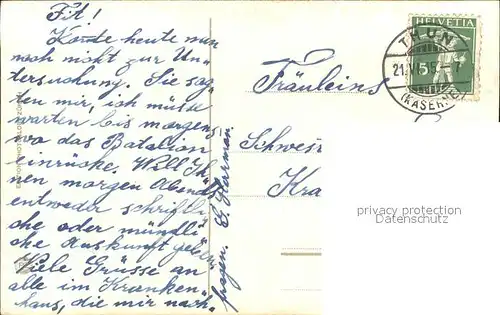 Fit!
Konte heute nun
noch nicht zur Un-
tersuchung. Sie sag-
ten mir, ich müsse
warten bis morgens,
wo das Batalion
einrücke. Will Ih-
nen morgen Abend
entweder schriftli-
che oder mündli-
che Auskunft geben.
Viele Grüsse an
alle im Kranken-
haus, die mir nach-
fragen. E. Herrman
Fräuleins
Schwes
Kra
HELVETIA
5
THUN
21.
(KASERNE)
privacy protection
Datenschutz